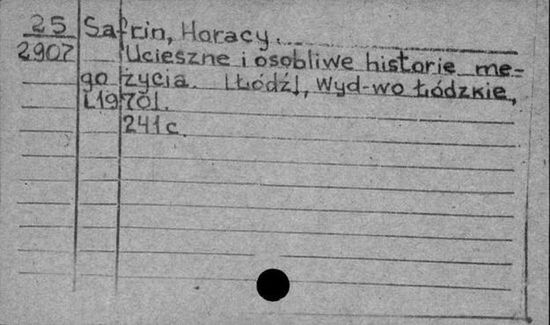 25 Safrin, Horacy.
2907 Ucieszne i osobliwe historie me-
go życia. [Łódź], Wyd-wo Łódzkie,
[1970].
241 c.